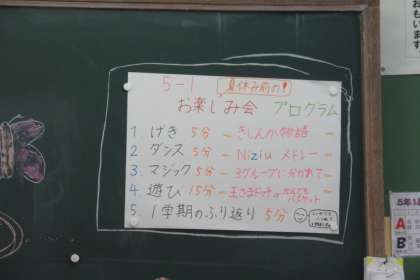 5-1 夏休み前の!
お楽しみ会 プログラム
1. げき 5分 ~ きしんか物語 ~
2. ダンス 5分 ~ Niziu メドレー ~
3. マジック 5分 ~ 3グループに分かれて~
4. 遊び 15分 ~王さまドッチorなんでもバスケット
5. 1学期のふり返り 5分
おいます。
5年1
A
B